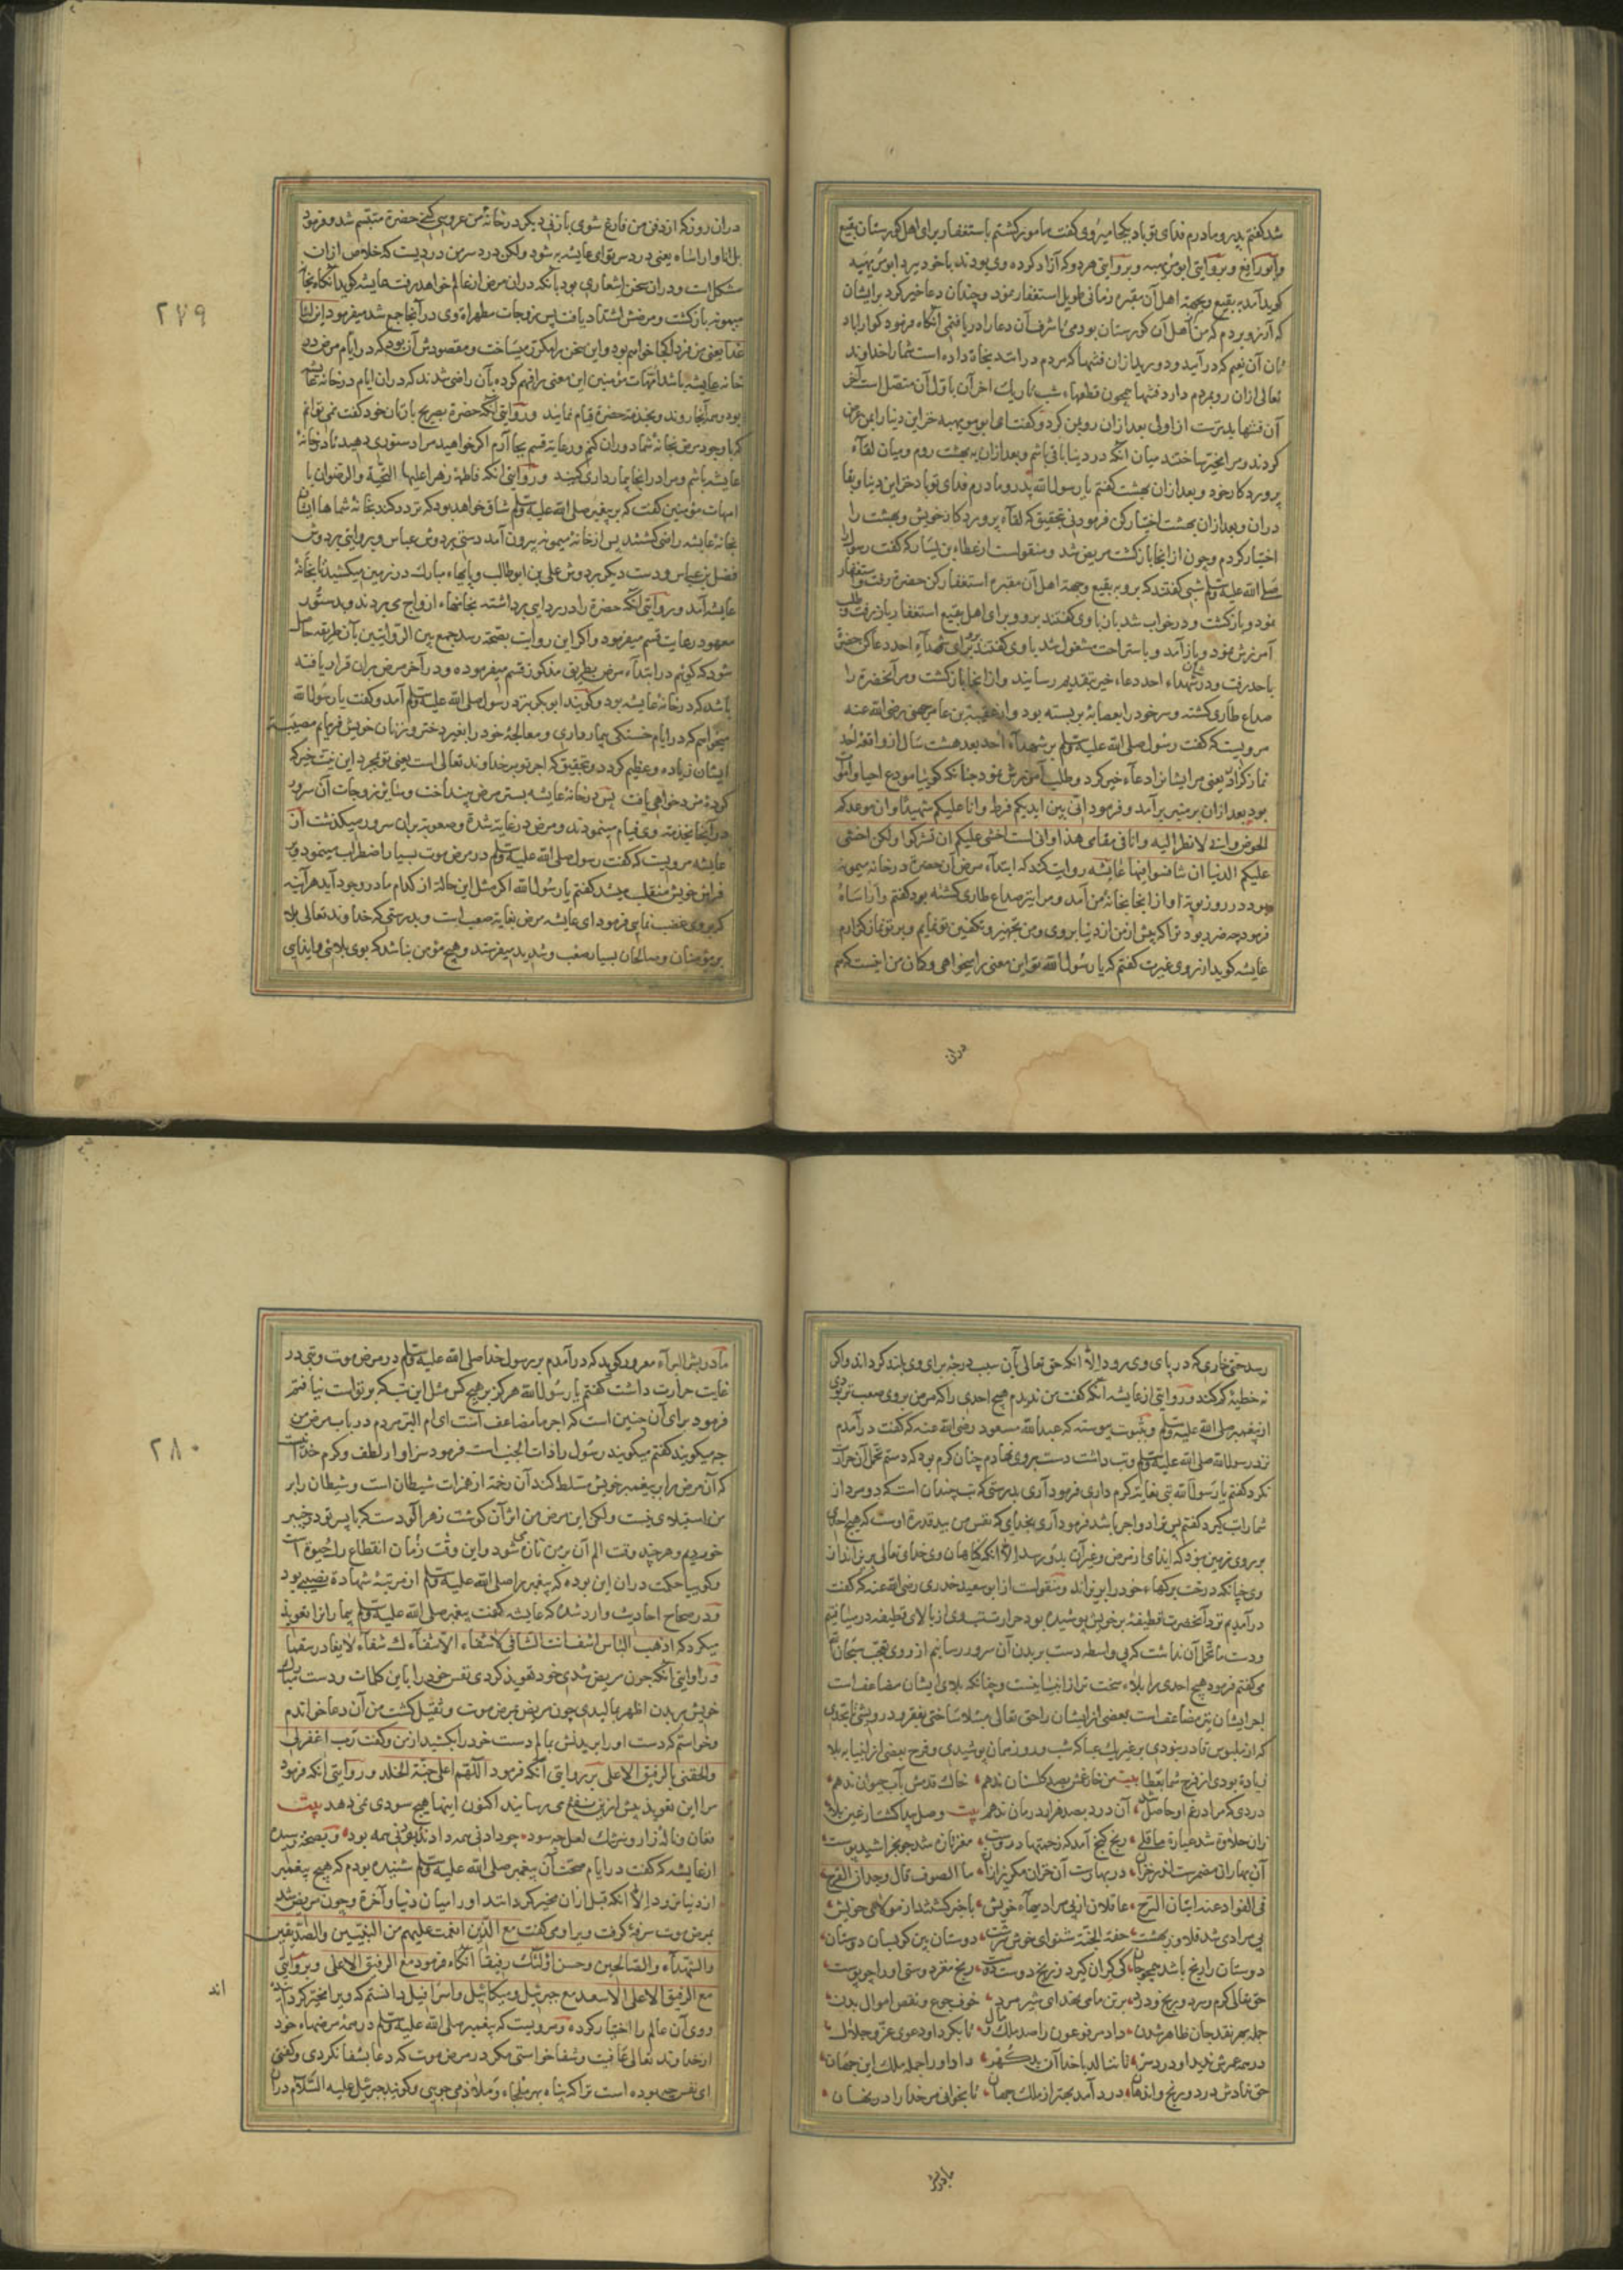 شد گفتم پدر و مادرم فدای تو باد بکجا میروی گفت مامور گشتم باستغفار برای اهل گورستان بقیع
و ابورافع و بروایتی ابومویهبه و بروایتی هر دو که آزاد کرده وی بودند با خود ببرد ابومویهبه
گوید آمد به بقیع و بجهة اهل آن مقبره زمانی طویل استغفار نمود و چندان دعا خیر کرد برایشان
که آرزو بردم که من از اهل آن گورستان بودمی تا شرف آن دعا را دریافتمی آنگاه فرمود گوارا باد
تعالی ازان رو بمردم دارد فتنها همچون قطعهاء شب تاریک اخر آن باول آن متصل است
آن فتنها بدترست از اولی بعد ازان روی بمن کرد و گفت ای ابومویهبه خزاین دنیا را بمن عرض
کردند و مرا مخیر ساختند میان آنکه در دنیا باقی باشم و بعد ازان به بهشت روم و میان لقاء
پروردکار خود و بعد ازان بهشت گفتم یا رسول الله پدر و مادرم فدای تو باد خزاین دنیا و بقا
دران و بعد ازان بهشت اختیار کن فرمود نی بتحقیق که لقاء پروردکار خویش و بهشت را
اختیار کردم و چون از انجا بازگشت مریض شد و منقولست از عطاء بن یسار که گفت رسول
صلی الله علیه وسلم شبی گفتند که برو به بقیع و بجهة اهل آن مقبره استغفار کن حضرة رفت و استغفار
نمود و بازگشت و در خواب شد باز باوی گفتند برو و برای اهل بقیع استغفار
آمرزش نمود و باز آمد و باستراحت مشغول شد باوی گفتند برو برای شهداء احد دعا کن حضرة
باحد رفت و در شان شهداء احد دعاء خیر بتقدیم رسانید و از انجا بازگشت و مر آنحضرة را
صداع طاری گشته و سر خود را بعصابه بر بسته بود و از عقبة بن عامر جهنی رضی الله عنه
مرویست که گفت رسول صلی الله علیه وسلم بر شهداء احد بعد هشت سال از واقعه احد
نماز گزارد یعنی مر ایشانرا دعاء خیر کرد و طلب آمرزش نمود چنانکه گوییا مودع احیا و اموات
بود بعد ازان بر منبر بر آمد و فرمود انی بین ایدیکم فرط وانا علیکم شهید وان موعدکم
الحوض وانی لانظر الیه وانا فی مقامی هذا وانی لست اخشی علیکم ان تشرکوا ولکن اخشی
علیکم الدنیا ان تنافسوا فیها عایشه روایت کند که ابتداء مرض آن حضرة در خانه میمونه
بود در روز نوبة او از انجا بخانه من آمد و مرا نیز صداع طاری گشته بود گفتم واراساه
فرمود چه ضرر بود ترا که پیش از من از دنیا بروی و من تجهیز و تکفین تو نمایم و بر تو نماز گزارم
عایشه گوید از روی غیرت گفتم که یا رسول الله تو این معنی را میخواهی و گمان من اینست که هم
دران
دران روز که از دفن من فارغ شوی با زنی دیگر در خانه من عروسی کنی حضرة متبسم شد و فرمود
بل انا واراساه یعنی درد سر تو ای عایشه به شود ولکن درد سر من دردیست که خلاص ازان
مشکل است و دران سخن اشعاری بود بآنکه دران مرض از عالم خواهد رفت عایشه گوید آنگاه بخانه
میمونه بازگشت و مرضش اشتداد یافت پس زوجات مطهراة وی در آنجا جمع شد میفرمود این انا
غدا یعنی من فردا کجا خواهم بود و این سخن را مکرر میساخت و مقصودش آن بود که در ایام مرض در
خانه عایشه باشد امهات مؤمنین این معنی را فهم کرده بآن راضی شدند که دران ایام در خانه عایشه
بود و همه آنجا روند و بخدمت حضرة قیام نمایند و روایتی آنکه حضرة بصریح با زنان خود گفت نمی توانم
که با وجود مرض بخانه شما دوران کنم و رعایة قسم بجا آرم اگر خواهید مرا دستوری دهید تا در خانه
عایشه باشم و مرا در انجا بیمارداری کنید و روایتی انکه فاطمه زهرا علیها التحیة والرضوان با
امهات مؤمنین گفت که بر پیغمبر صلی الله علیه وسلم شاق خواهد بود که تردد کند بخانه شماها ایشان
بخانه عایشه راضی گشتند پس از خانه میمونه بیرون آمد دستی بردوش عباس و بروایتی بردوش
فضل بن عباس و دست دیگر بردوش علی بن ابوطالب و پایهاء مبارک در زمین میکشید تا بخانه
عایشه آمد و بروایتی آنکه حضرة را در ردایی برداشته بخانهاء ازواج می بردند و بدستور
معهود رعایت قسم میفرمود و اگر این روایت بصحة رسد جمع بین الروایتین بآن طریقه حاصل
شود که گویم در ابتداء مرض بطریق مذکور قسم میفرموده و در آخر مرض بران قرار یافته
باشد که در خانه عایشه بود و گویند ابوبکر نزد رسول صلی الله علیه وسلم آمد و گفت یا رسول الله
میخواهم که در ایام خستگی بیمارداری و معالجه خود را بغیر دختر و زنان خویش فرمایم مصیبت
ایشان زیاده و عظیم گردد و بتحقیق که اجر تو بر خداوند تعالی است یعنی تو بمجرد این نیت خیر که
کرده مزد خواهی یافت پس در خانه عایشه بستر مرض بینداخت و سایر زوجات آن سرور
در آنجا بخدمت وی قیام مینمودند و مرض در غایة شدة و صعوبة بران سرور میگذشت از
عایشه مرویست که گفت رسول صلی الله علیه وسلم در مرض موت بسیار اضطراب مینمود و بر
فراش خویش منقلب میشد گفتم یا رسول الله اگر مثل این حالة از کدام ما در وجود آید هر آینه
که بروی غضب نمایی فرمود ای عایشه مرض بغایة صعب است و بدرستی که خداوند تعالی بلا
بر مؤمنان و صالحان بسیار صعب و شدید میفرستد و هیچ مؤمن نباشد که بوی بلائی و ایذایی
٢٧٩
رسد حتی خاری که در پای وی رود الا آنکه حق تعالی بآن سبب درجه برای وی بلند گرداند و ازو
نه خطیئه کم کند و روایتی از عایشه آنکه گفت من ندیدم هیچ احدی را که مرض بروی صعب تر بودی
از پیغمبر صلی الله علیه وسلم و بثبوت پیوسته که عبدالله مسعود رضی الله عنه که گفت در آمدم
نزد رسول الله صلی الله علیه وسلم وتب داشت دست بروی نهادم چنان گرم بود که دستم تحمل آن حرارت
نکرد گفتم یا رسول الله تبی بغایة گرم داری فرمود آری بدرستی که تب چندان است که دو مرد از
شما را تب گیرد گفتم پس ترا دو اجر باشد فرمود آری بخدای که نفس من بید قدرة اوست که هیچ احدی
بر روی زمین نبود که ایذای از مرض و غیر آن بدو رسد الا آنکه گناهان وی خدای تعالی بریزاند از
وی چنانکه درخت برگهاء خود را بریزاند و منقولست از ابو سعید خدری رضی الله عنه که گفت
در آمدیم نزد آنحضرت قطیفه بر خویش پوشیده بود حرارت تب وی از بالای قطیفه در مییافتیم
و دست ما تحمل آن نداشت که بی واسطه دست بر بدن آن سرور رسانیم از روی تعجب سبحان الله
می گفتیم فرمود هیچ احدی را بلاء سخت تر از انبیا نیست و چنانکه بلای ایشان مضاعف است
اجر ایشان نیز مضاعف است بعضی از ایشان را حق تعالی مبتلا ساختی بفقر و درویشی تا بحدی
که از ملبوس قادر نبودی بر غیر یک عبا که شب و روز همان پوشیدی و فرح بعضی از انبیا ببلا
زیاده بودی از فرح شما بعطا بیت من خار غمش بصد گلستان ندهم خاک قدمش بآب حیوان ندهم
دردی که مرا درغم او حاصل شد آن درد بصد هزار درمان ندهم بیت
رنج گنج آمد که رحمتها دروست مغز تازه شد چو بخراشید پوست
آن بهاران مضمرست اندر خزان در بهارست آن خزان مگریز ازان ما التصوف قال وجدان الفرح
فی الفواد عند اتیان الترح عاقلان از بی مرادیهاء خویش باخبر گشتند از مولای خویش
بی مرادی شد قلاوز بهشت حفت الجنة شنو ای خوش سرشت دوستان بین کو نشان دوستان
دوستان را رنج باشد همچو جان کی کران گیرد ز رنج دوست دوست رنج مغز و دوستی او را چو پوست
حق تعالی گرم و سرد و رنج و درد برتن ما می نهد ای شیر مرد خوف و جوع و نقص اموال و بدن
جمله بهر نقد جان ظاهر شدن داد مر فرعون را صد ملک و مال تا بکرد او دعوی عز و جلال
در همه عمرش ندید او درد سر تا ننالد با خدا آن بد گهر داد او را جمله ملک این جهان
حق ندادش درد و رنج و اندهان درد آمد بهتر از ملک جهان تا بخوانی مر خدا را در نهان
مادر بشر
مادر بشر البراء معرور گوید که در آمدم بر رسول خدا صلی الله علیه وسلم در مرض موت وتبی در
غایت حرارت داشت گفتم یا رسول الله هرگز بر هیچ کس مثل این تب که بر تواست نیافتم
فرمود برای آن چنین است که اجر ما مضاعف است ای ام البشر مردم در باب مرض من
چه میگویند گفتم میگویند رسول را ذات الجنب است فرمود سزاوار لطف و کرم خدا نیست
که آن مرض را بر پیغمبر خویش مسلط کند آن زخمه از همزات شیطان است و شیطان را بر
من استیلای نیست ولکن این مرض من اثر آن گوشت زهر آلودست که با پسر تو در خیبر
خوردیم و هر چند وقت الم آن بر من تازه می شود و این وقت زمان انقطاع رگ حیوة است
و گوییا حکمت دران این بوده که پیغمبر را صلی الله علیه وسلم از مرتبه شهادة نصیبی بود
و در صحاح احادیث وارد شده که عایشه گفت پیغمبر صلی الله علیه وسلم بیمارانرا تعویذ
میکرد که اذهب الباس اشف انت الشافی لا شفاء الا شفاءک شفاء لا یغادر سقما
و روایتی آنکه چون مریض شدی خود تعویذ کردی نفس خود را باین کلمات و دست مبارک
خویش بر بدن اطهر مالیدی چون مریض بمرض موت و ثقیل گشت من آن دعا خواندم
و خواستم که دست او را بر بدنش بمالم دست خود را بکشید از من و گفت رب اغفرلی
والحقنی بالرفیق الاعلی بروایتی آنکه فرمود اللهم اعلی جنة الخلد و روایتی انکه فرمود
مرا این تعویذ پیش ازین نفع می رسانید اکنون اینها هیچ سودی نمی دهد بیت
فغان و ناله زار و سرشک لعل چه سود و بصحة رسیده
از عایشه که گفت در ایام صحت از پیغمبر صلی الله علیه وسلم شنیده بودم که هیچ پیغمبر
از دنیا نرود الا آنکه قبل ازان مخیر گرداند او را میان دنیا و آخرة و چون مریض شد
بمرض موت سرفه گرفت ویرا و می گفت مع الذین انعمت علیهم من النبیین والصدیقین
والشهداء والصالحین وحسن اولئک رفیقا آنگاه فرمود مع الرفیق الاعلی و بروایتی
مع الرفیق الاعلی الاسعد مع جبرئیل ومیکائیل واسرافیل دانستم که ویرا مخیر گردانیده
اند
و وی آن عالم را اختیار کرده و مرویست که پیغمبر صلی الله علیه وسلم در همه مرضهاء خود
از خداوند تعالی عافیت و شفا خواستی مگر در مرض موت که دعا بشفا نکردی و گفتی
ای نفس چه بوده است ترا که پناه بهر ملجاء و ملاذ می جویی و گویند جبرئیل علیه السلام دران
٢٨٠